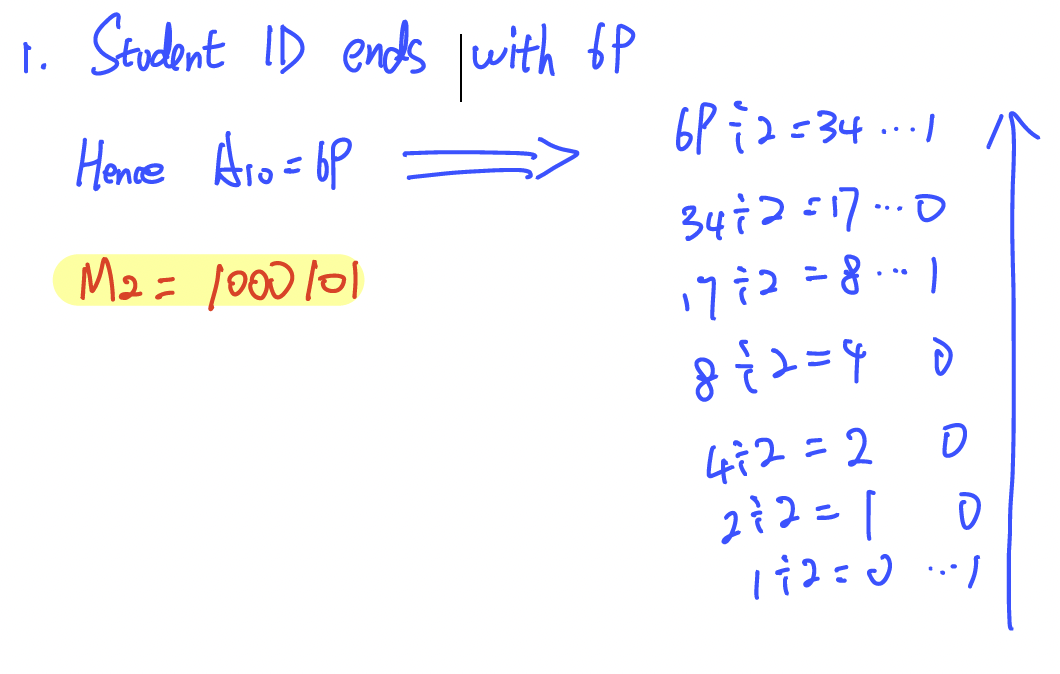 1. Student ID ends with 69
Hence A10 = 69 ⟹
M2 = 1000101
69 ÷ 2 = 34 ... 1
34 ÷ 2 = 17 ... 0
17 ÷ 2 = 8 ... 1
8 ÷ 2 = 4 0
4 ÷ 2 = 2 0
2 ÷ 2 = 1 0
1 ÷ 2 = 0 ... 1